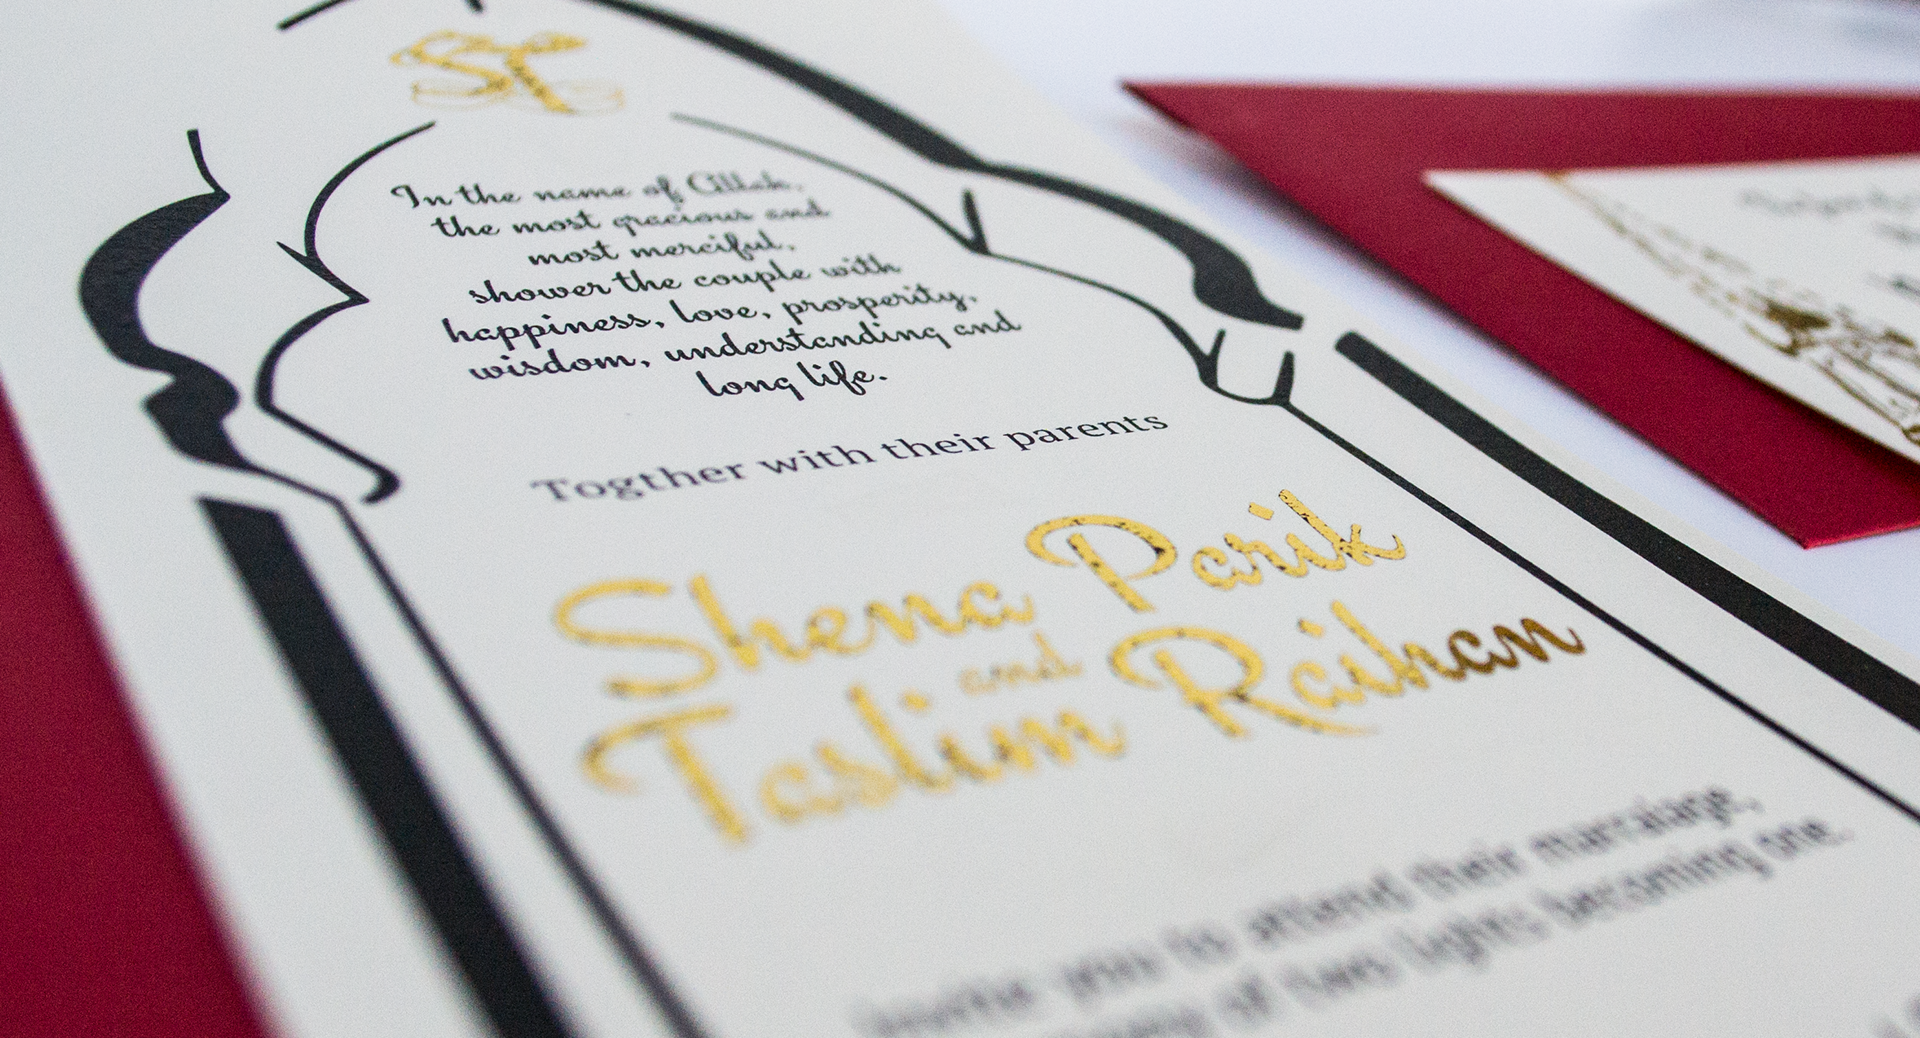 ST
In the name of Allah,
the most gracious and
most merciful,
shower the couple with
happiness, love, prosperity,
wisdom, understanding and
long life.
Togther with their parents
Shena Parik
and
Taslim Raihan
invite you to attend their marraiage,
of two lights becoming one.